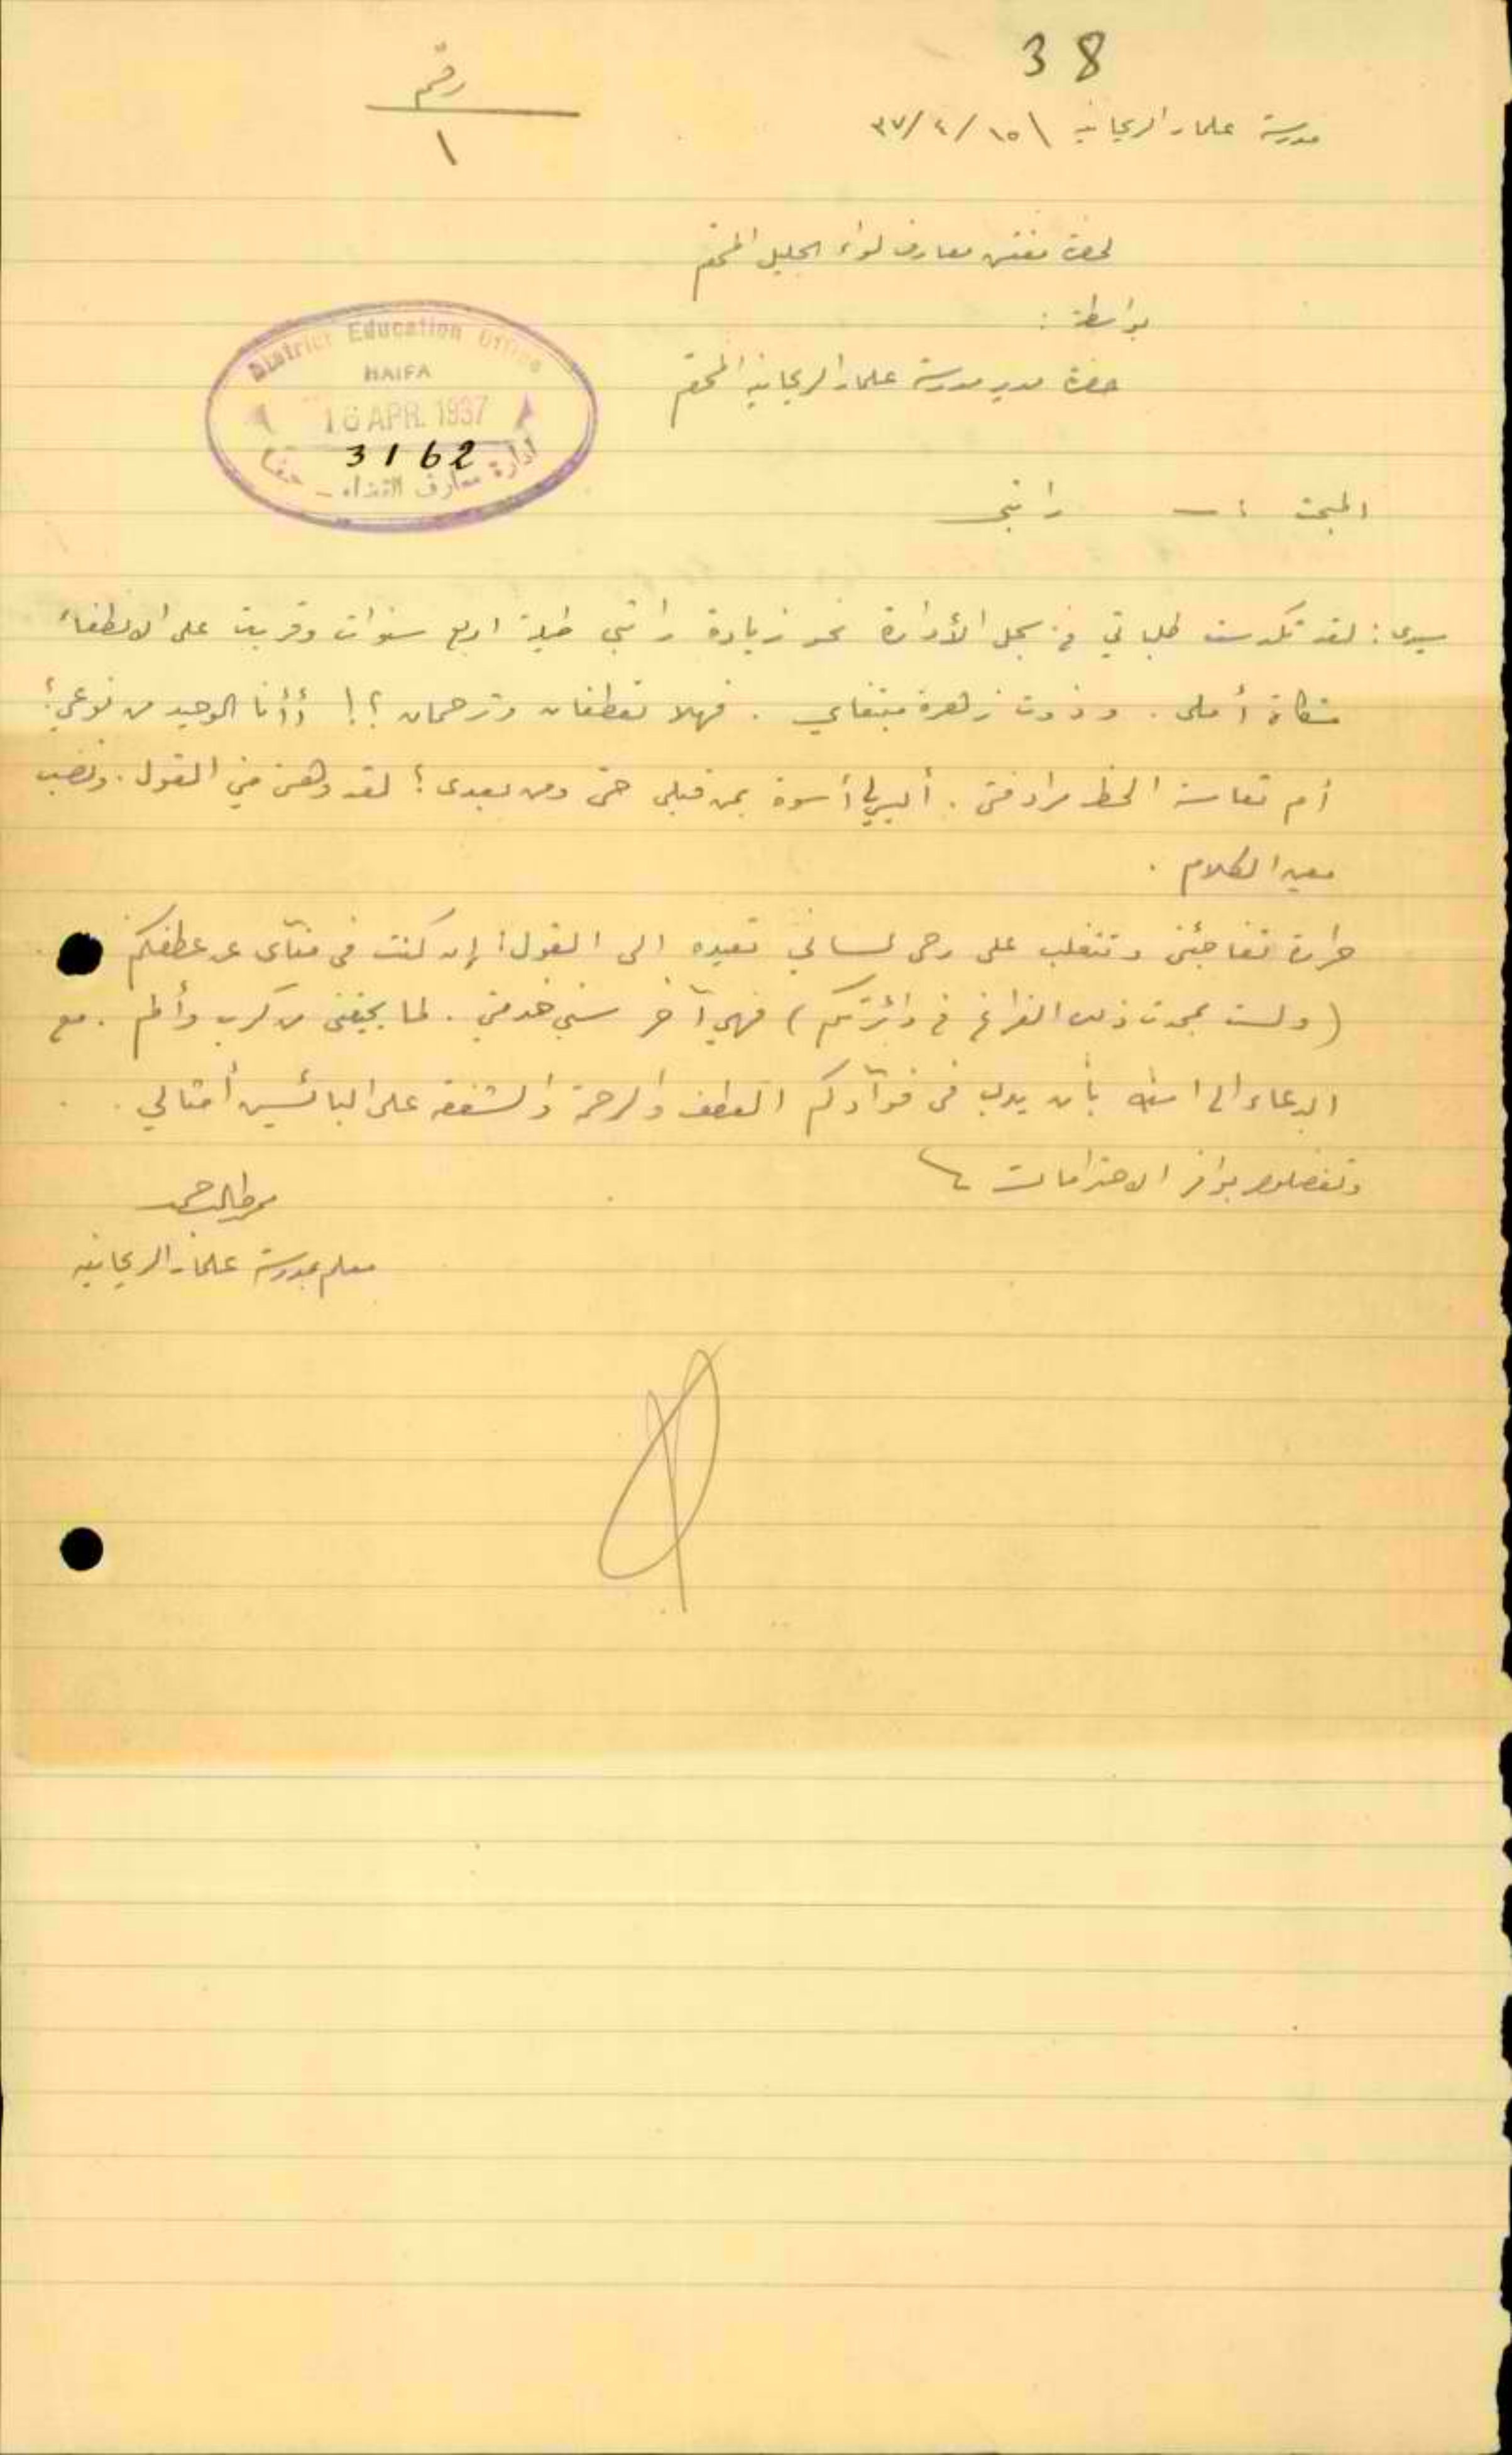 38
رقم
١
مدرسة علما والريحانية \ ١٥/ ٤/ ٣٧
لحضرة مفتش معارف لواء الجليل المحترم
بواسطة :
حضرة مدير مدرسة علما والريحانية المحترم
District Education Office
HAIFA
16 APR. 1937
3162
ادارة معارف القضاء - حيفا
المبحث :- راتبي
سيدي : لقد تكدست طلباتي في سجل الأدارة نحو زيادة راتبي طيلة اربع سنوات وقربت على الانطفاء
مشكاة أملي . وذوت زهرة مبتغاي . فهلا تعطفان وترحمان ؟! أأنا الوحيد من نوعي ؟
أم تعاسة الحظ مرادفتي . أليس لي أسوة بمن قبلي حتى ومن بعدي ؟ لقد وهن مني القول . ونضب
معين الكلام .
حرارة تفاجئني وتتغلب على وحي لساني تعيده الى القول : إن كنت في منآى عن عطفكم
( ولست بمحدث ذلك الفراغ في دائرتكم ) فهي آخر سني خدمتي . لما يخنقني من كرب وألم . مع
الدعاء الى الله بأن يدب في فوآدكم العطف والرحمة والشفقة على البائسين أمثالي .
وتفضلوا بوافر الاحترامات
معلم بمدرسة علما والريحانية